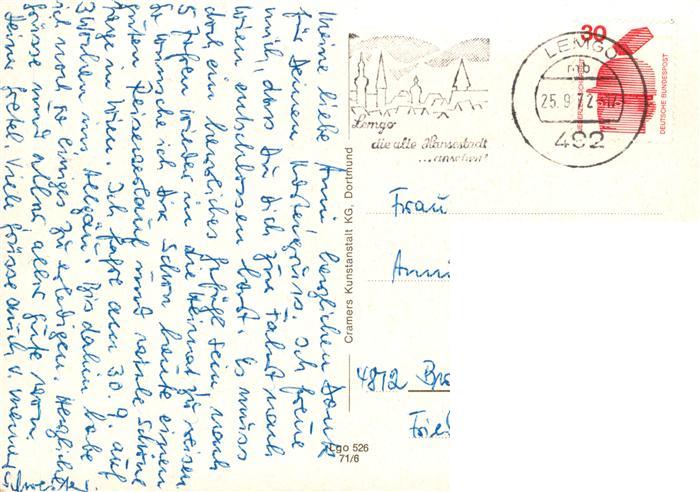 Meine liebe Anni herzlichen Dank
für Deinen Kartengruss. Ich freue
mich, dass Du Dich zur Fahrt nach
Wien entschlossen hast. Es muss
doch ein herrliches Gefühl sein nach
5 Jahren wieder in die Heimat zu reisen
So wünsche ich Dir schon heute einen
guten Reiseverlauf und recht schöne
Tage in Wien. Ich fahre am 30.9. auf
3 Wochen ins Allgäu. Bis dahin habe
ich noch so einiges zu erledigen. Herzlichste
Grüsse und alles, alles Gute
Deine Gretel. Viele Grüsse auch v. meiner
30
DEUTSCHE BUNDESPOST
LEMGO
mb
25.9.72
492
Lemgo
die alte Hansestadt
... ansehen!
Cramers Kunstanstalt KG, Dortmund
Frau
Anni
4812
Lgo 526
71/6